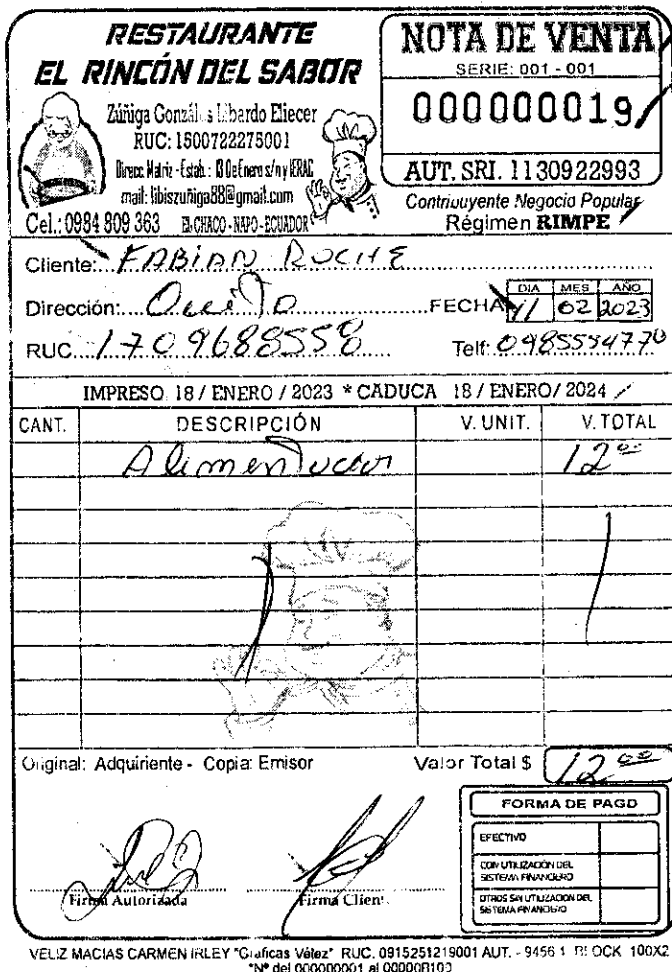 RESTAURANTE
EL RINCÓN DEL SABOR
Zúñiga Gonzáles Libardo Eliecer
RUC: 1500722275001
Direcc. Matriz - Estab.: 13 De Enero s/n y IERAC
mail: libiszuñiga88@gmail.com
Cel.: 0984 809 363 EL CHACO - NAPO - ECUADOR
NOTA DE VENTA
SERIE: 001 - 001
000000019
AUT. SRI. 1130922993
Contribuyente Negocio Popular
Régimen RIMPE
Cliente: FABIAN ROCHE
Dirección: Quito FECHA DIA MES AÑO
11 02 2023
RUC 1709688558 Telf: 0985554770
IMPRESO 18 / ENERO / 2023 * CADUCA 18 / ENERO / 2024
CANT. DESCRIPCIÓN V. UNIT. V. TOTAL
Alimentacion 12 00
Original: Adquiriente - Copia: Emisor Valor Total $ 12 00
FORMA DE PAGO
EFECTIVO
CON UTILIZACIÓN DEL
SISTEMA FINANCIERO
OTROS SIN UTILIZACION DEL
SISTEMA FINANCIERO
Firma Autorizada Firma Client
VELIZ MACIAS CARMEN IRLEY "Graficas Vélez" RUC. 0915251219001 AUT. - 9456 1 BLOCK 100X2
"Nº del 000000001 al 000000100